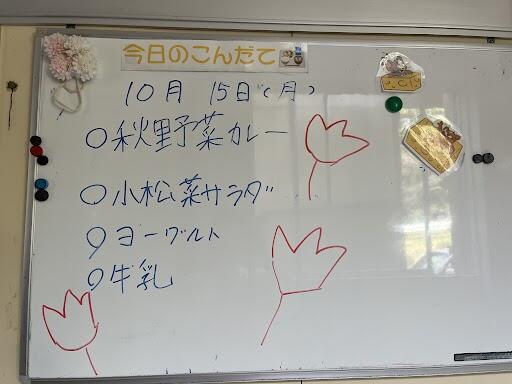 今日のこんだて
10月 15日(月)
○秋野菜カレー
○小松菜サラダ
○ヨーグルト
○牛乳